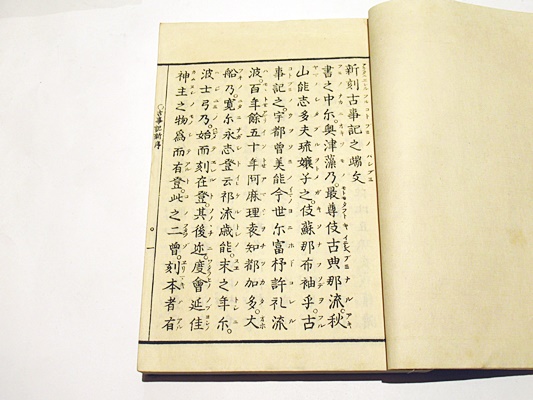 新刻古事記之端文
書之中尓。奥津藻乃。最尊伎古典那流。秋
山能志多夫琉嬢子之。伎蘇那布袖乎。古
事記之。宇都曽美能今世尓富杼許礼流
波。百年餘五十年阿麻理袁知都加多。大
船乃。寛永志登云祁流歳能。末之年尓。
波士弓乃。始而刻在登。其後迩。度會延佳
神主之物為而有登。此之二曽。刻本者有
古事記新序
一